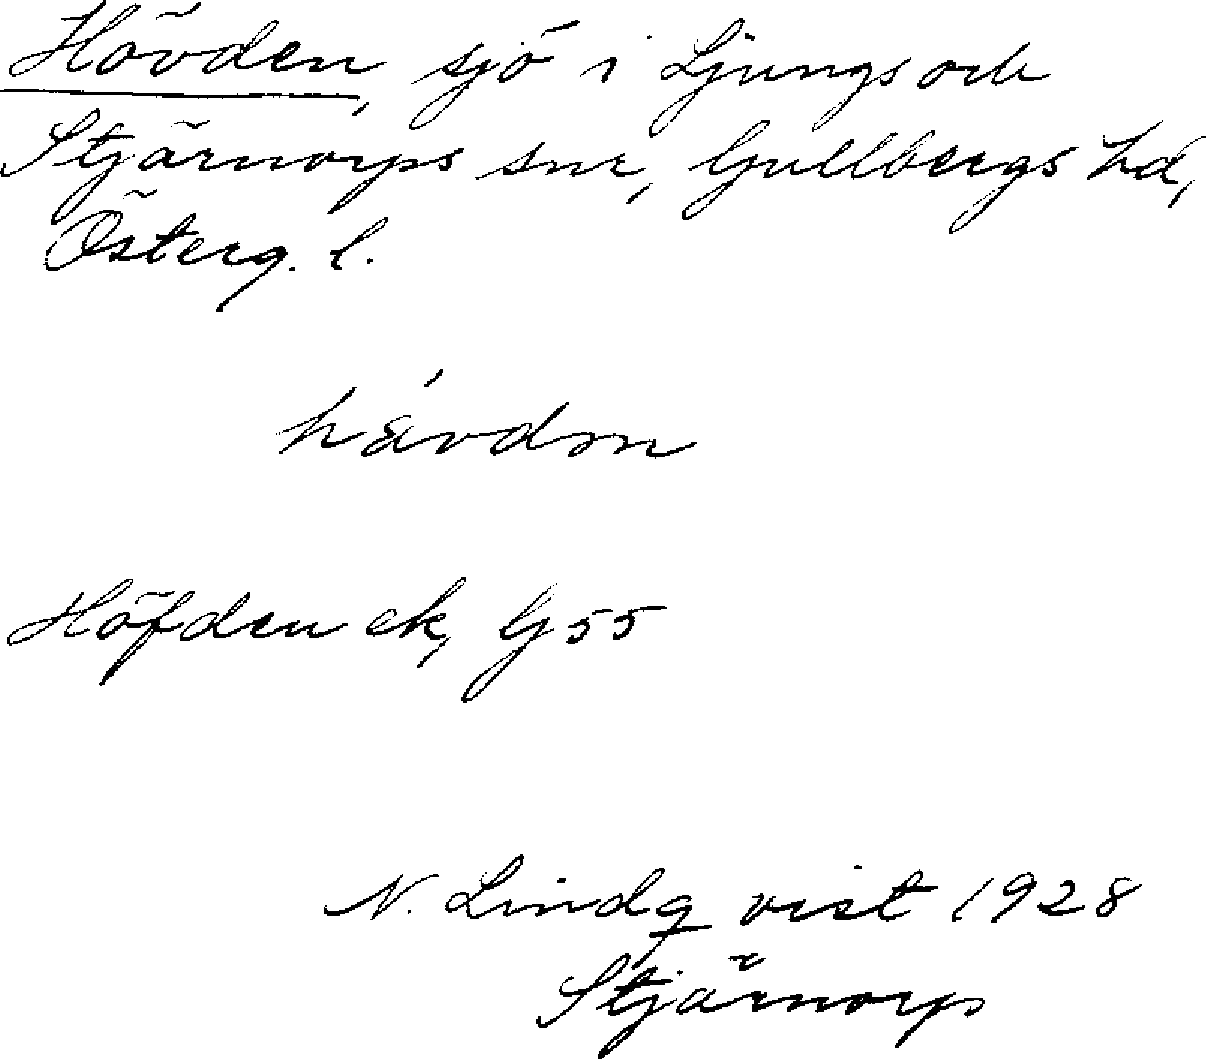 Hövden, sjö i Ljungs och
Stjärnorps snr, Gullbergs hd,
Österg. l.
hävdṃ
Höfden ek, G 55
N. Lindqvist 1928
Stjärnorp